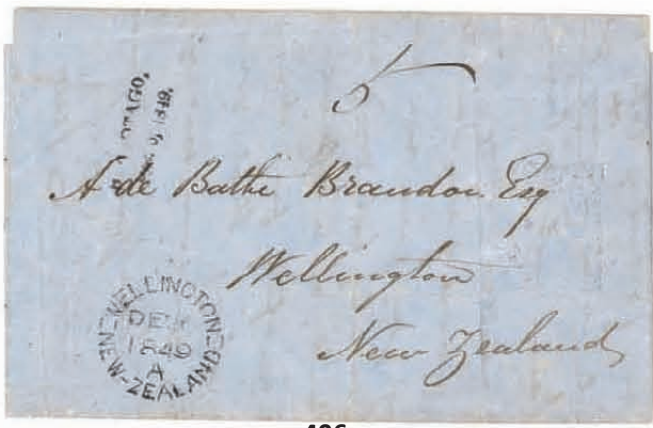 5
OTAGO,
1849,
A de Bathe Brandon Esq
Wellington
New Zealand
WELLINGTON
DE
1849
A
NEW-ZEALAND